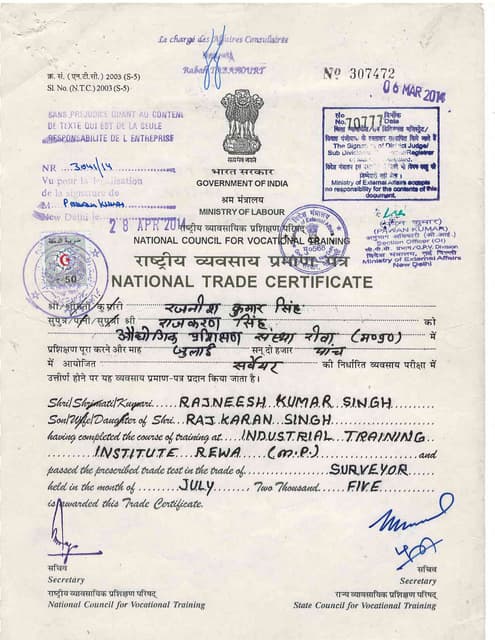 Le chargé des Affaires Consulaires
Rabah
क्र. सं. (एन.टी.सी.) 2003 (S-5)
Sl No. (N.T.C.) 2003 (S-5)
Nº 307472
06 MAR 2014
SANS PREJUDICE QUANT AU CONTENU
DE TEXTE QUI EST DE LA SEULE
RESPONSABILITE DE L ENTREPRISE
No
No. 70777 दिनांक Date
The Signature of District Judge/
Sub Divisional Registrar
Ministry of External Affairs accepts
no responsibility for the contents of this
document.
सत्यमेव जयते
भारत सरकार
GOVERNMENT OF INDIA
श्रम मंत्रालय
MINISTRY OF LABOUR
NR 3041/14
Vu pour la légalisation
de la signature de
M PAWAN KUMAR
New Delhi le
28 APR 2014
(PAWAN KUMAR)
Section Officer (OI)
Ministry of External Affairs
New Delhi
राष्ट्रीय व्यवसायिक प्रशिक्षण परिषद्
NATIONAL COUNCIL FOR VOCATIONAL TRAINING
राष्ट्रीय व्यवसाय प्रमाण-पत्र
NATIONAL TRADE CERTIFICATE
50
श्री/श्रीमती/कुमारी रजनीश कुमार सिंह
सुपुत्र/पत्नी/सुपुत्री श्री राजकरण सिंह को
औद्योगिक प्रशिक्षण संस्था रीवा (म०प्र०) में
प्रशिक्षण पूरा करने और माह जुलाई सन् दो हजार पांच
में आयोजित सर्वेयर की निर्धारित व्यवसाय परीक्षा में
उत्तीर्ण होने पर यह व्यवसाय प्रमाण-पत्र प्रदान किया जाता है।
Shri/Shrimati/Kumari RAJNEESH KUMAR SINGH
Son/Wife/Daughter of Shri RAJ KARAN SINGH
having completed the course of training at INDUSTRIAL TRAINING
INSTITUTE REWA (M.P.) and
passed the prescribed trade test in the trade of SURVEYOR
held in the month of JULY Two Thousand FIVE
is awarded this Trade Certificate.
सचिव
Secretary
राष्ट्रीय व्यावसायिक प्रशिक्षण परिषद्
National Council for Vocational Training
सचिव
Secretary
राज्य व्यावसायिक प्रशिक्षण परिषद्
State Council for Vocational Training